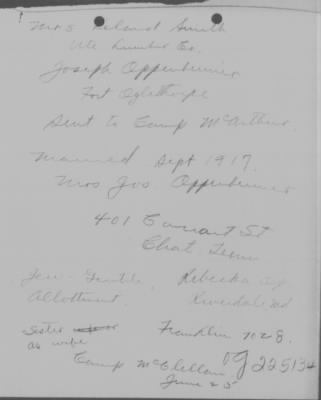 Mrs Leland Smith
Ute Lumber Co.
Joseph Oppenheimer
Fort Oglethorpe
Sent to Camp McArthur.
Married Sept 1917.
Mrs Jos Oppenheimer
401 St
Chat. Tenn
Jew - Gentile, Rebecka
Allottment. Riverdale Rd
Sister Franklin 702 8.
as wife
Camp McClellan OG 225134
June 25